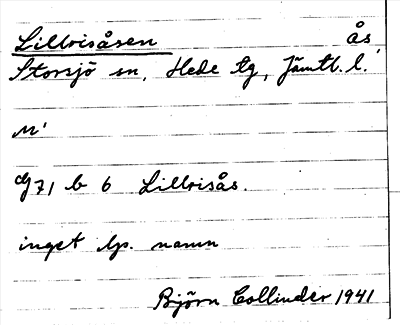 Lillrisåsen ås
Storsjö sn, Hede tg, Jämtl. l.
M'
71 b 6 Lillrisås.
inget lp. namn
Björn Collinder 1941